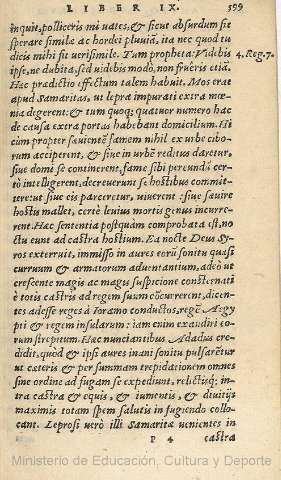 LIBER IX. 599
inquit, polliceris mi uates, & sicut absurdum sit
sperare similæ ac hordei pluuiã, ita nec quod tu
dicis mihi fit uerisimile. Tum propheta: Videbis 4. Reg. 7.
ipse, ne dubita, sed uidebis modò, non frueris etiã.
Hac prædictio effectum talem habuit. Mos erat
apud Samaritas, ut lepra impurati extra mœ-
nia degerent: & tum quoq; quatuor numero hac
de causa extra portas habebant domicilium. Hi
cùm propter sæuientẽ famem nihil ex urbe cibo-
rum acciperent, & siue in urbẽ reditus daretur,
siue domi se continerent, fame sibi pereundũ cer-
tò intelligerent, decreuerunt se hostibus commit-
tere: ut siue eis parceretur, uiuerent: siue sæuire
hostis mallet, certè leuius mortis genus incurre-
rent. Hac sententia postquàm comprobata est, no
ctu eunt ad castra hostium. Ea nocte Deus Sy-
ros exterruit, immisso in aures eorũ sonitu quasi
curruum & armatorum aduentantium, adeò ut
crescente magis ac magis suspicione consternati
è totis castris ad regem suum cõcurrerent, dicen-
tes adesse reges à Ioramo conductos, regẽ Aegy
pti & regem insularum: iam enim exaudiri eo-
rum strepitum. Hæc nunciantibus Adadus cre-
didit, quòd & ipsi aures inani sonitu pulsarẽtur
ut cæteris & per summam trepidationem omnes
sine ordine ad fugam se expediunt, relictisq; in-
tra castra & equis, & iumentis, & diuitijs
maximis totam spem salutis in fugiendo collo-
cant. Leprosi verò illi Samaritæ uenientes in
P 4 castra
Ministerio de Educación, Cultura y Deporte